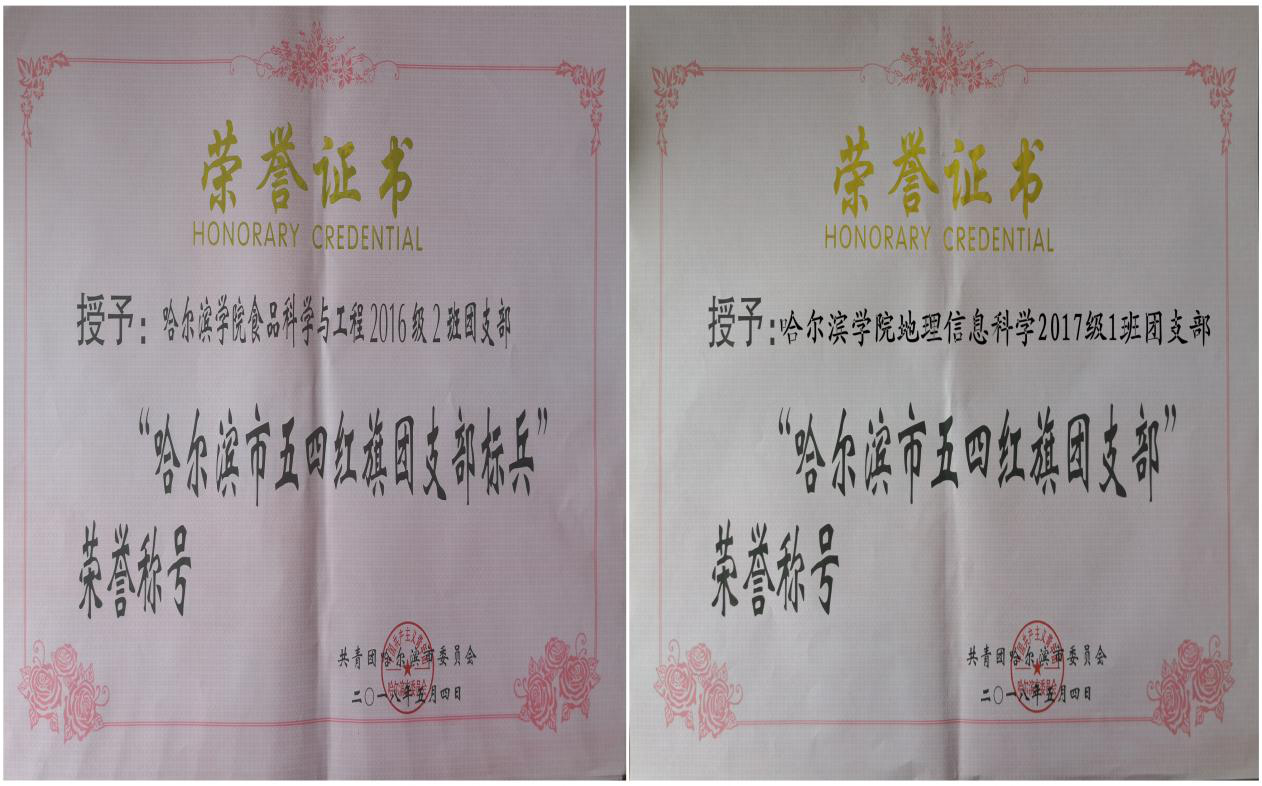 荣誉证书
HONORARY CREDENTIAL
授予：哈尔滨学院食品科学与工程2016级2班团支部
“哈尔滨市五四红旗团支部标兵”
荣誉称号
共青团哈尔滨市委员会
二〇一八年五月四日
荣誉证书
HONORARY CREDENTIAL
授予：哈尔滨学院地理信息科学2017级1班团支部
“哈尔滨市五四红旗团支部”
荣誉称号
共青团哈尔滨市委员会
二〇一八年五月四日